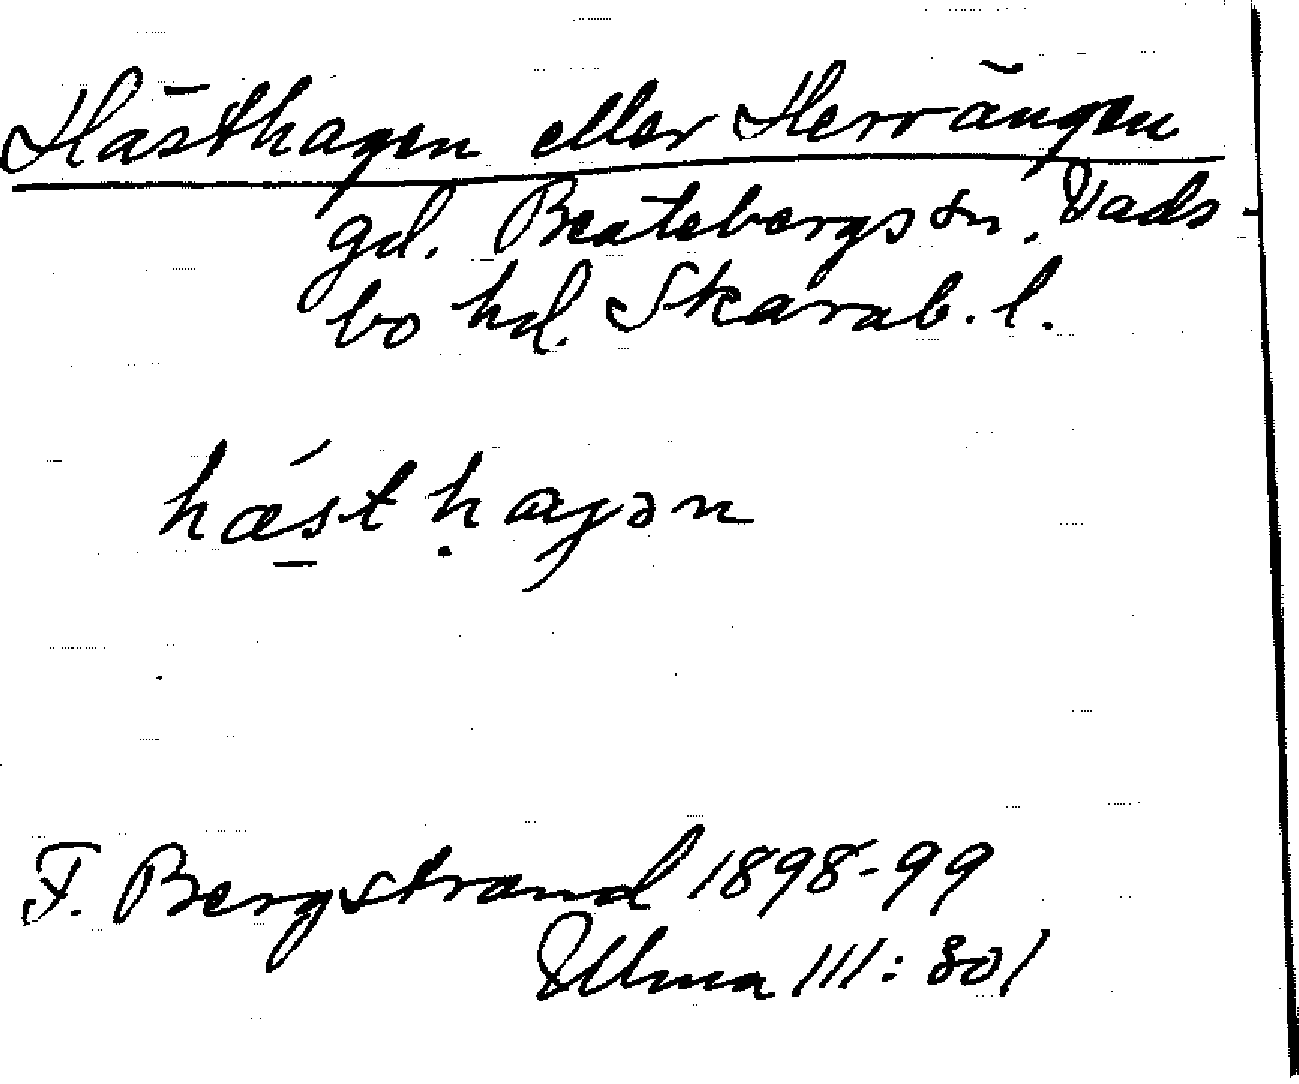 Hästhagen eller Herrängen
gd. Beatebergs sn. Vads-
bo hd. Skarab. l.
hǽst hagən
F. Bergstrand 1898-99
Ulma 111:801